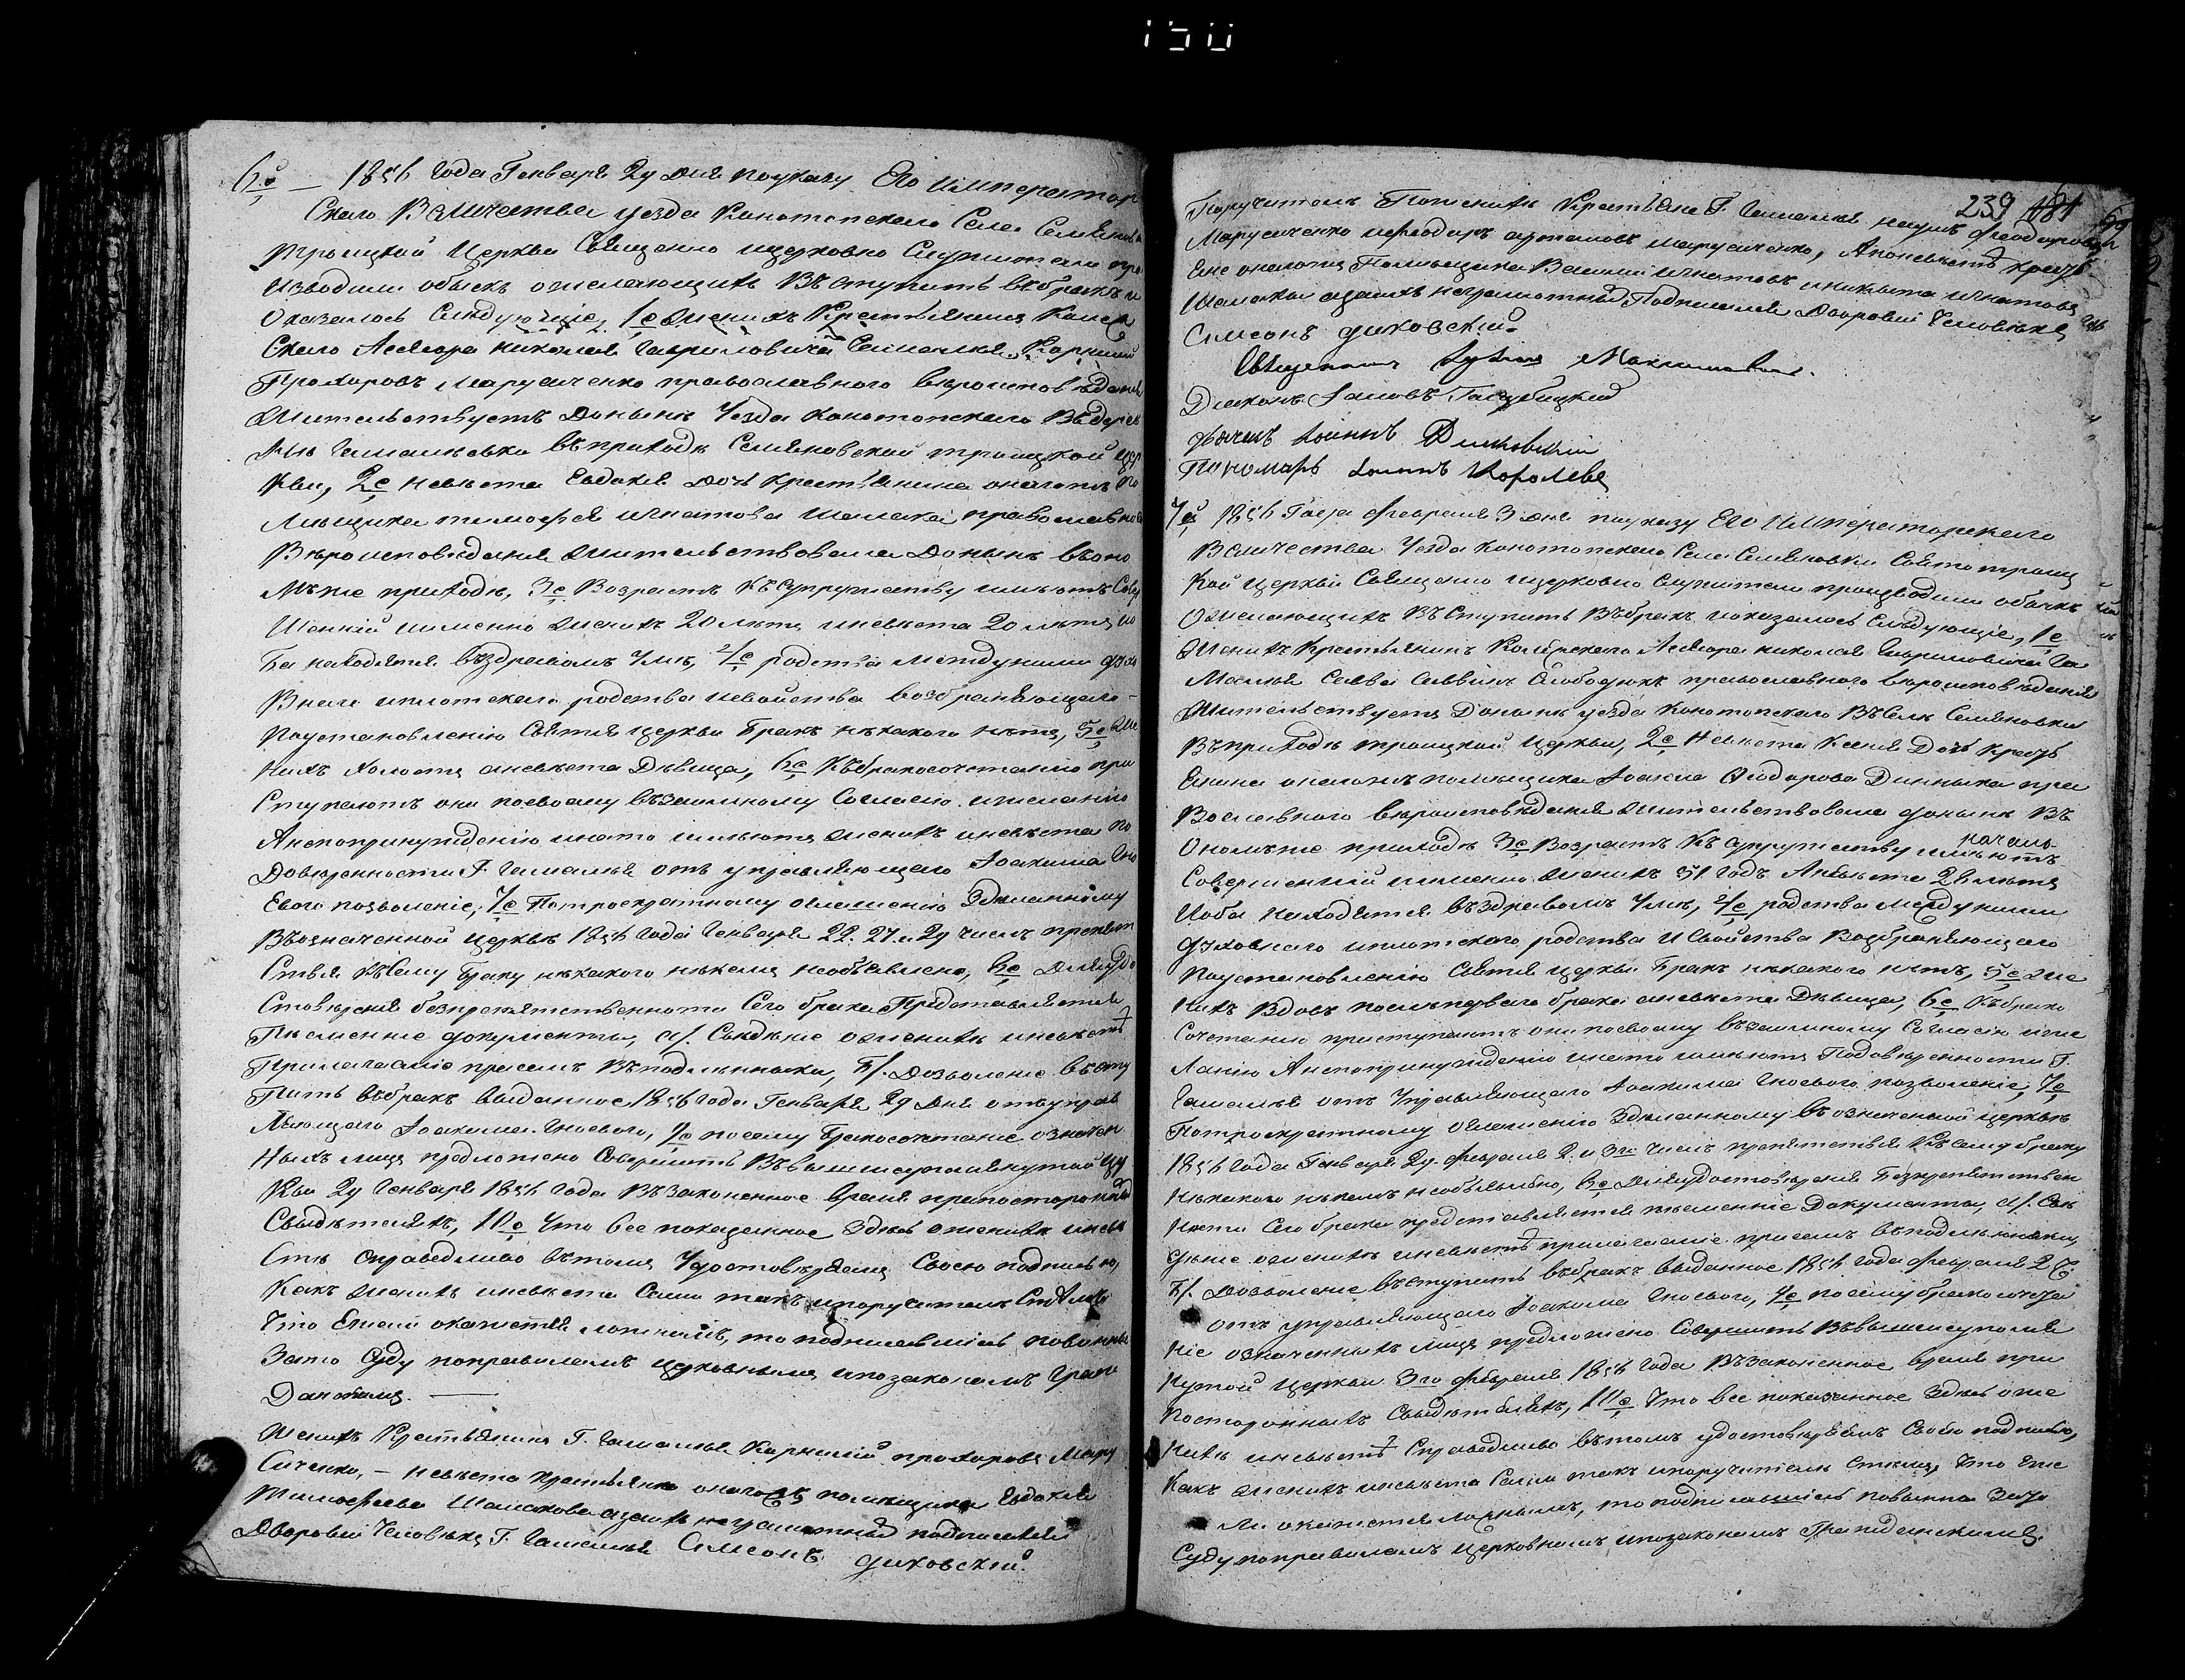 150
6й — 1856 года Генваря 29 дня поуказу Его Император
Скаго Величества уезда Конотопскаго Села Семянов
троицкой Церкви Священно ицерковно Служители про
изводили обыскъ ожелающихъ Вступить вбракъ и
Оказалось Следующіе, 1е Женихъ Крестьянинъ Колеж
Скаго Асесора николая Гавриловича Гамалѣя Корнилій
Прохоровъ Марусиченко православного вѣроисповѣданія
Жительствуетъ Донынѣ Уезда Конотопскаго Вдерев
нѣ Гамалѣевки вприходѣ Семяновской троицкой цер
Кви, 2е невѣста Евдокія дочь крестьянина оногожъ по
мѣщика тимофея игнатова Шамака православного
Вѣроисповѣданія Жительствовала Донынѣ воно
Мъже приходѣ, 3е Возрастъ Къ Супружеству имѣютъ Совер
Шенній именно женихъ 20 лѣтъ иневѣста 20 лѣтъ ио
Ба находятся въздравомъ Умѣ, 4е родства между ними духо
Внаго иплотскаго родства исвойства возбраняющаго
Поустановленію Святыя церкви Бракъ нѣкакого нѣтъ, 5е Же
нихъ холостъ аневѣста Дѣвица, 6е Къбракосочетанію при
Ступаютъ они посвоему възаимному Согласію ижеланію
Анепопринужденію инато имѣютъ женихъ иневѣста по
Довѣренности Г. Гамалѣя отъ управляющаго Іоакима Гно
Евого позволеніе, 7е Потроекратному оглашенію Здѣланному
Вознаменной церкви 1856 года Генваря 22. 27. и 29 числъ препят
Ствія Ксему браку нѣкакого нѣкемъ необъявлено, 8е Для удо
Стовѣренія безпрепятственности Сего брака Представляются
Писменніе документы, а/. Свѣденіе оженихѣ иневѣстѣ
Прилагаміе присемъ Вподлѣнники, б/. дозволеніе всту
Пить вбракъ выданное 1856 года Генваря 29 Дня отъ управ
Ляющаго Іоакима Гноевого, 9е посему бракосочетаніе означен
Ныхъ лицъ предложено Совершить Ввышеупомянутой цер
Кви 29 Генваря 1856 года Взаконенное время припостороннихъ
Свидѣтеляхъ, 10е Что все показанное Здѣсь оженихѣ иневѣ
Стѣ Справедливо втомъ Удостовѣряемъ Своею подписью,
Какъ женихъ иневѣста Сами такъ ипоручители Стѣмъ
Что Ежели окажется ложнымъ, то подписавшіись повинны
Зато Суду поправиламъ Церковнымъ ипозаконамъ Граж
Данскимъ. —
Женихъ Крестьянинъ Г. Гамалѣя Корнилій прохоровъ Мару
Сиченко, — невѣста крестьянка оногожъ помѣщика Евдокія
Тимофеева Шамакова азаихъ неграмотныхъ подписался
Дворовій Человѣкъ Г. Гамалѣя Самсонъ духовскій.
239 181
Поручители Поженихѣ Крестьяне Г. Гамалѣя наумъ Феодоровъ
Марусиченко ифеодоръ артамовъ марусиченко, Апоневѣстѣ крест
яне оногожъ Помѣщика Василій игнатовъ иникита игнатовъ
Шамаки азаихъ неграмотныхъ Подписался Дворовій Человѣкъ
Самсонъ духовскій.
Священникъ
Діаконъ Іаковъ Голубицкій
дьячекъ Іоаннъ
Пономарь Іоаннъ Королевъ
7й 1856 Года Февраля 3 дня поуказу Его Императорскаго
Величества Уезда Конотопскаго Села Семяновки Святотроиц
Кой Церкви Священно ицерковно Служители производили обыскъ
Ожелающихъ Вступить Вбракъ иоказалось Следующіе, 1е
Женихъ Крестьянинъ Колежскаго Асесора николая Гавриловича Га
Малѣя Савва Саввинъ Слободюкъ православного вѣроисповѣданія
Жительствуетъ Донынѣ уезда Конотопскаго Вселѣ Семяновки
Вприходѣ троицкой Церкви, 2е Невѣста Ксенія Дочь Крест
янина оногожъ помѣщика Іоакима Феодорова Динника пра
Вославного вѣроисповѣданія жительствовала донынѣ Въ
Ономъже приходѣ 3е Возрастъ Къ Супружеству имѣютъ
Совершенній именно женихъ 51 годъ Аневѣста 26 лѣтъ
Иоба находятся въздравомъ Умѣ, 4е родства между ними
духовнаго иплотскаго родства и Свойства Возбраняющаго
Поустановленію Святыя церкви Бракъ нѣкакого нѣтъ, 5е же
нихъ Вдовъ послѣпервого брака аневѣста Дѣвица, 6е Къбрако
Сочетанію приступаютъ они посвоему възаимному Согласію иже
Ланію Анепопринужденію инато имѣютъ Подовѣренности Г.
Гамалѣя отъ Управляющаго Іоакима Гноевого позволеніе, 7е
Потроекратному оглашенію Здѣланному вознаменной церквѣ
1856 года Генваря 29. Февраля 2. и 3го Числъ препятствія Ксему браку
Нѣкакого нѣкемъ необъявлено, 8е Дляудостовѣренія Безпрепятствен
Ности Сего брака представляются писменніе Документы, а/. Свѣ
дѣніе оженихѣ иневѣстѣ прилагаміе присемъ вподлѣнники,
б/. дозволеніе вступить вбракъ выданное 1856 года Февраля 2
отъ управляющаго Іоакима Гноевого, 9е посемубракосочета
ніе означенныхъ лицъ предложено Совершить Ввышеупомя
нутой Церкви 3го Февраля 1856 года Взаконенное время при
Постороннихъ Свидѣтеляхъ, 10е Что все показанное Здѣсь оже
нихѣ иневѣстѣ Справедливо втомъ удостовѣряемъ Своею подписью,
Какъ женихъ иневѣста Сами такъ ипоручители Стѣмъ, Что Еже
ли окажется ложнымъ, то подписавшіись повинны Зато
Суду поправиламъ Церковнымъ ипозаконамъ Гражданскимъ.